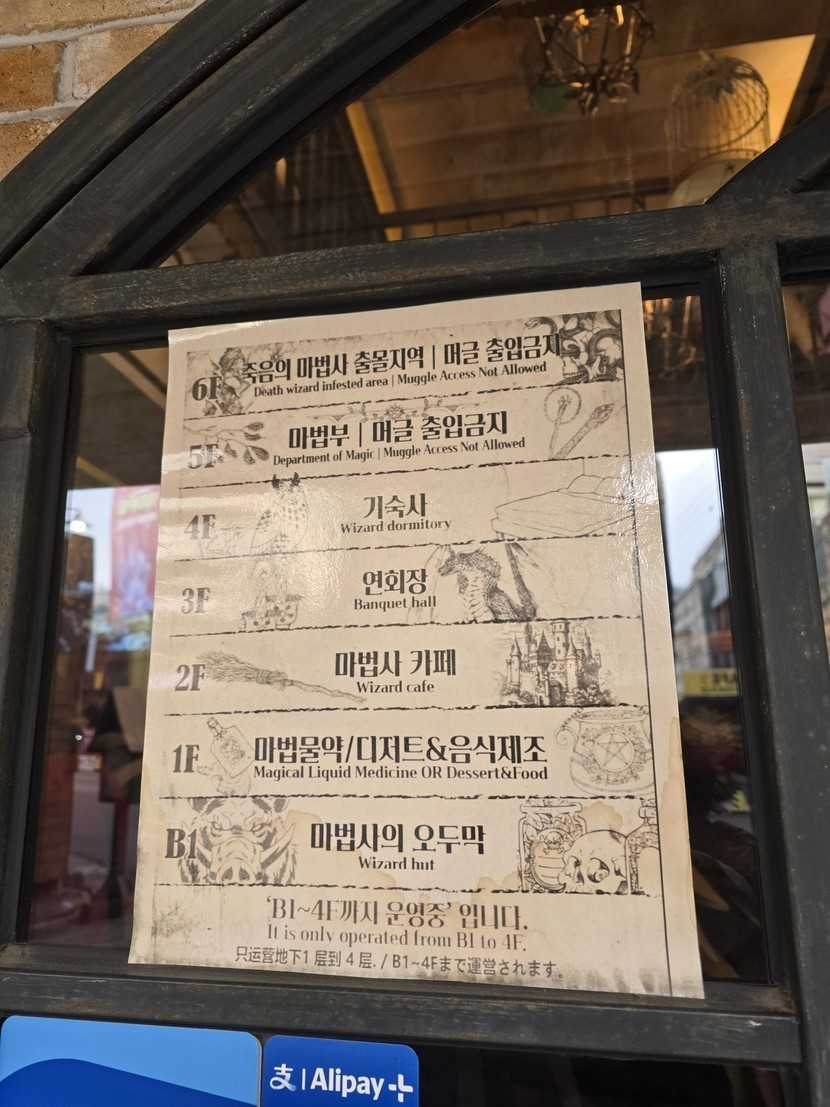 6F 죽음의 마법사 출몰지역 | 머글 출입금지
Death wizard infested area | Muggle Access Not Allowed
5F 마법부 | 머글 출입금지
Department of Magic | Muggle Access Not Allowed
4F 기숙사
Wizard dormitory
3F 연회장
Banquet hall
2F 마법사 카페
Wizard cafe
1F 마법물약/디저트&음식제조
Magical Liquid Medicine OR Dessert&Food
B1 마법사의 오두막
Wizard hut
‘B1~4F까지 운영중’ 입니다.
It is only operated from B1 to 4F.
只运营地下1 层到 4 层. / B1~4Fまで運営されます。
支 | Alipay+